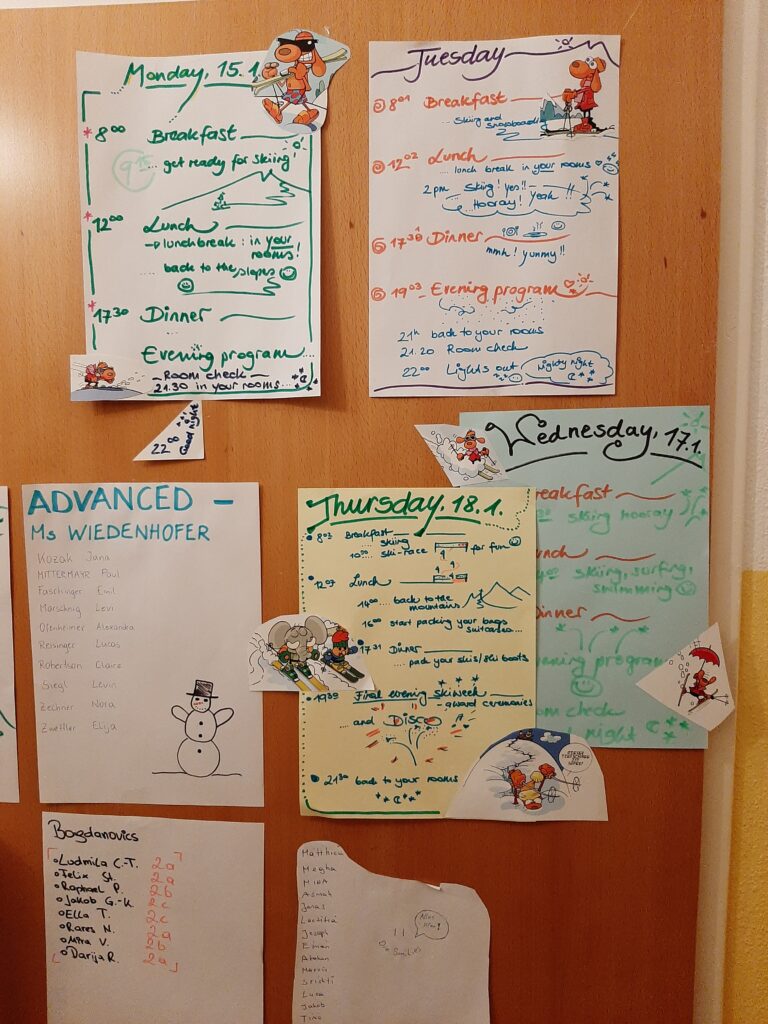 Monday, 15.1.
* 8⁰⁰ Breakfast
9¹⁵ ... get ready for skiing!
* 12⁰⁰ Lunch
→ lunchbreak: in your
rooms!
... back to the slopes
* 17³⁰ Dinner
Evening program...
- Room check -
21.30 in your rooms...
22⁰⁰ Good night
Tuesday
8⁰¹ Breakfast
... Skiing and
snowboarding
12⁰² Lunch
... lunch break in your rooms
2pm Skiing! yes!! !!
Hooray! Yeah
17³⁰ Dinner
mmh! yummy!!
19⁰³ Evening program
21h back to your rooms
21.20 Room check
22⁰⁰ Lights out
Nighty night
Wednesday, 17.1.
reakfast
skiing hooray
unch
skiing, surfing,
swimming
Dinner
evening program
om check
night
ADVANCED –
Ms WIEDENHOFER
Kozak Jana
MITTERMAYR Paul
Faschinger Emil
Marschnig Levi
Ofenheimer Alexandra
Reisinger Lucas
Robertson Claire
Stiegl Levin
Zechner Nora
Zwettler Elija
Thursday, 18.1.
8⁰³ Breakfast
... skiing
10⁰⁰ ski-race for fun
12⁰⁷ Lunch
14⁰⁰ ... back to the
mountains
16⁰⁰ start packing your bags
suitcases...
17³¹ Dinner
.... pack your skis/ski boots
19³⁹ Final evening skiweek
- award ceremonies
... and DISCO
21³⁰ back to your rooms
Bogdanovics
Ludmila C.-T. 2a
Felix St. 2a
Raphael P. 2b
Jakob G.-K. 2c
Ella T. 2c
Rares N. 2a
Mira V. 2b
Darija R. 2a
Matthias
Megha
MIRA
Asmah
Jonas
Laetitia
Joseph
Abohan
Marvin
Srishti
Luca
Jakob
Tino
Alles
klar!
Smilies